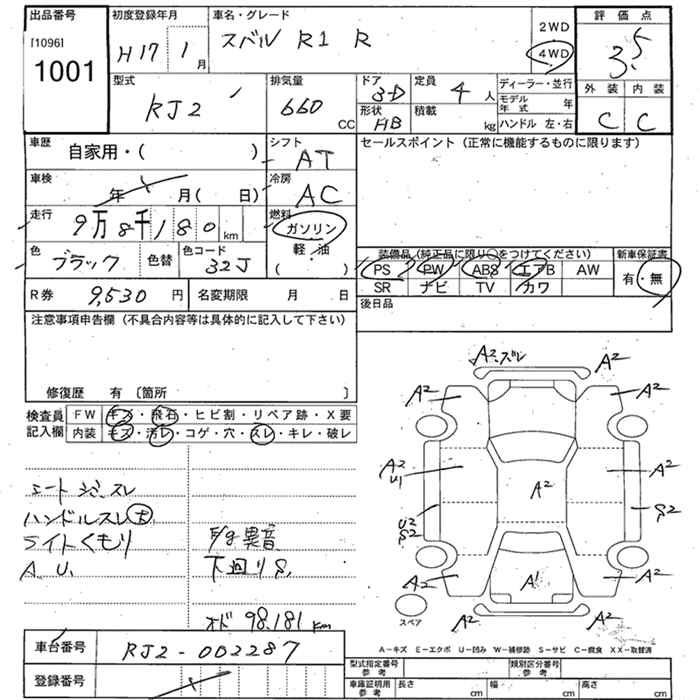 出品番号 初度登録年月 車名・グレード 評価点
[1096] 1001 H17 1月 スバル R1 R 2WD 4WD 3.5
外装 内装
C C
型式 排気量 ドア 定員 ディーラー・並行
RJ2 660 CC 3-D 4人 モデル年式 年
形状 積載
HB kg ハンドル 左・右
車歴 シフト セールスポイント (正常に機能するものに限ります)
自家用・( ) AT
車検 冷房
年 月( 日) AC
走行 燃料
9万8千180 km ガソリン
軽・油
( )
色 色替 色コード
ブラック 32J
装備品 (純正品に限り○をつけてください) 新車保証書
PS PW ABS エアB AW 有・無
SR ナビ TV カワ
R券 9,530円 名変期限 月 日 後日品
注意事項申告欄 (不具合内容等は具体的に記入して下さい)
修復歴 有 [箇所 ]
検査員記入欄
FW キズ・飛石・ヒビ割・リペア跡・X要
内装 キズ・汚レ・コゲ・穴・スレ・キレ・破レ
ハンドルスレ大
ライトくもり F/g異音
A、U、 下回りS、
オド 98,181 km
A2、スレ A2
A2 A2
A2 U1 A2 A2
U2 S2 S2
A2 A1 A2
A2 A2
スペア
A－キズ E－エクボ U－凹み W－補修跡 S－サビ C－腐食 XX－取替済
車台番号 RJ2-002287
登録番号
型式指定番号 参考 類別区分番号 参考
車庫証明用 参考 長さ cm 幅 cm 高さ cm